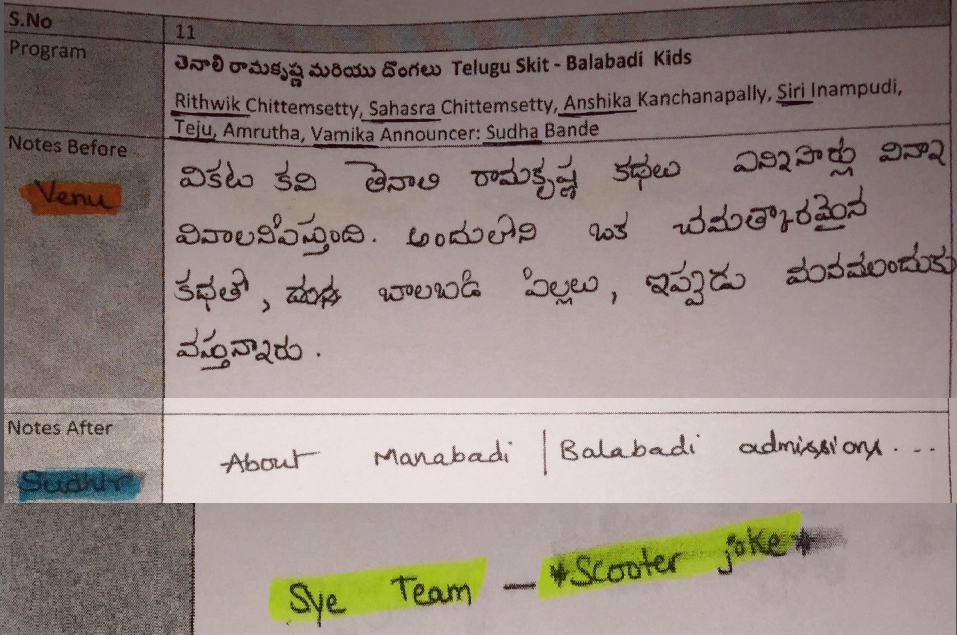 S.No 11
Program
తెనాలి రామకృష్ణ మరియు దొంగలు Telugu Skit - Balabadi Kids
Rithwik Chittemsetty, Sahasra Chittemsetty, Anshika Kanchanapally, Siri Inampudi,
Teju, Amrutha, Vamika Announcer: Sudha Bande
Notes Before
Venu
వికట కవి తెనాలి రామకృష్ణ కథలు ఎన్నిసార్లు విన్నా
వినాలనిపిస్తుంది. అందులోని ఒక చమత్కారమైన
కథతో, బాలబడి పిల్లలు, ఇప్పుడు మనముందుకు
వస్తున్నారు.
Notes After
Sudhir
About Manabadi | Balabadi admissions...
Sye Team - *Scooter joke*